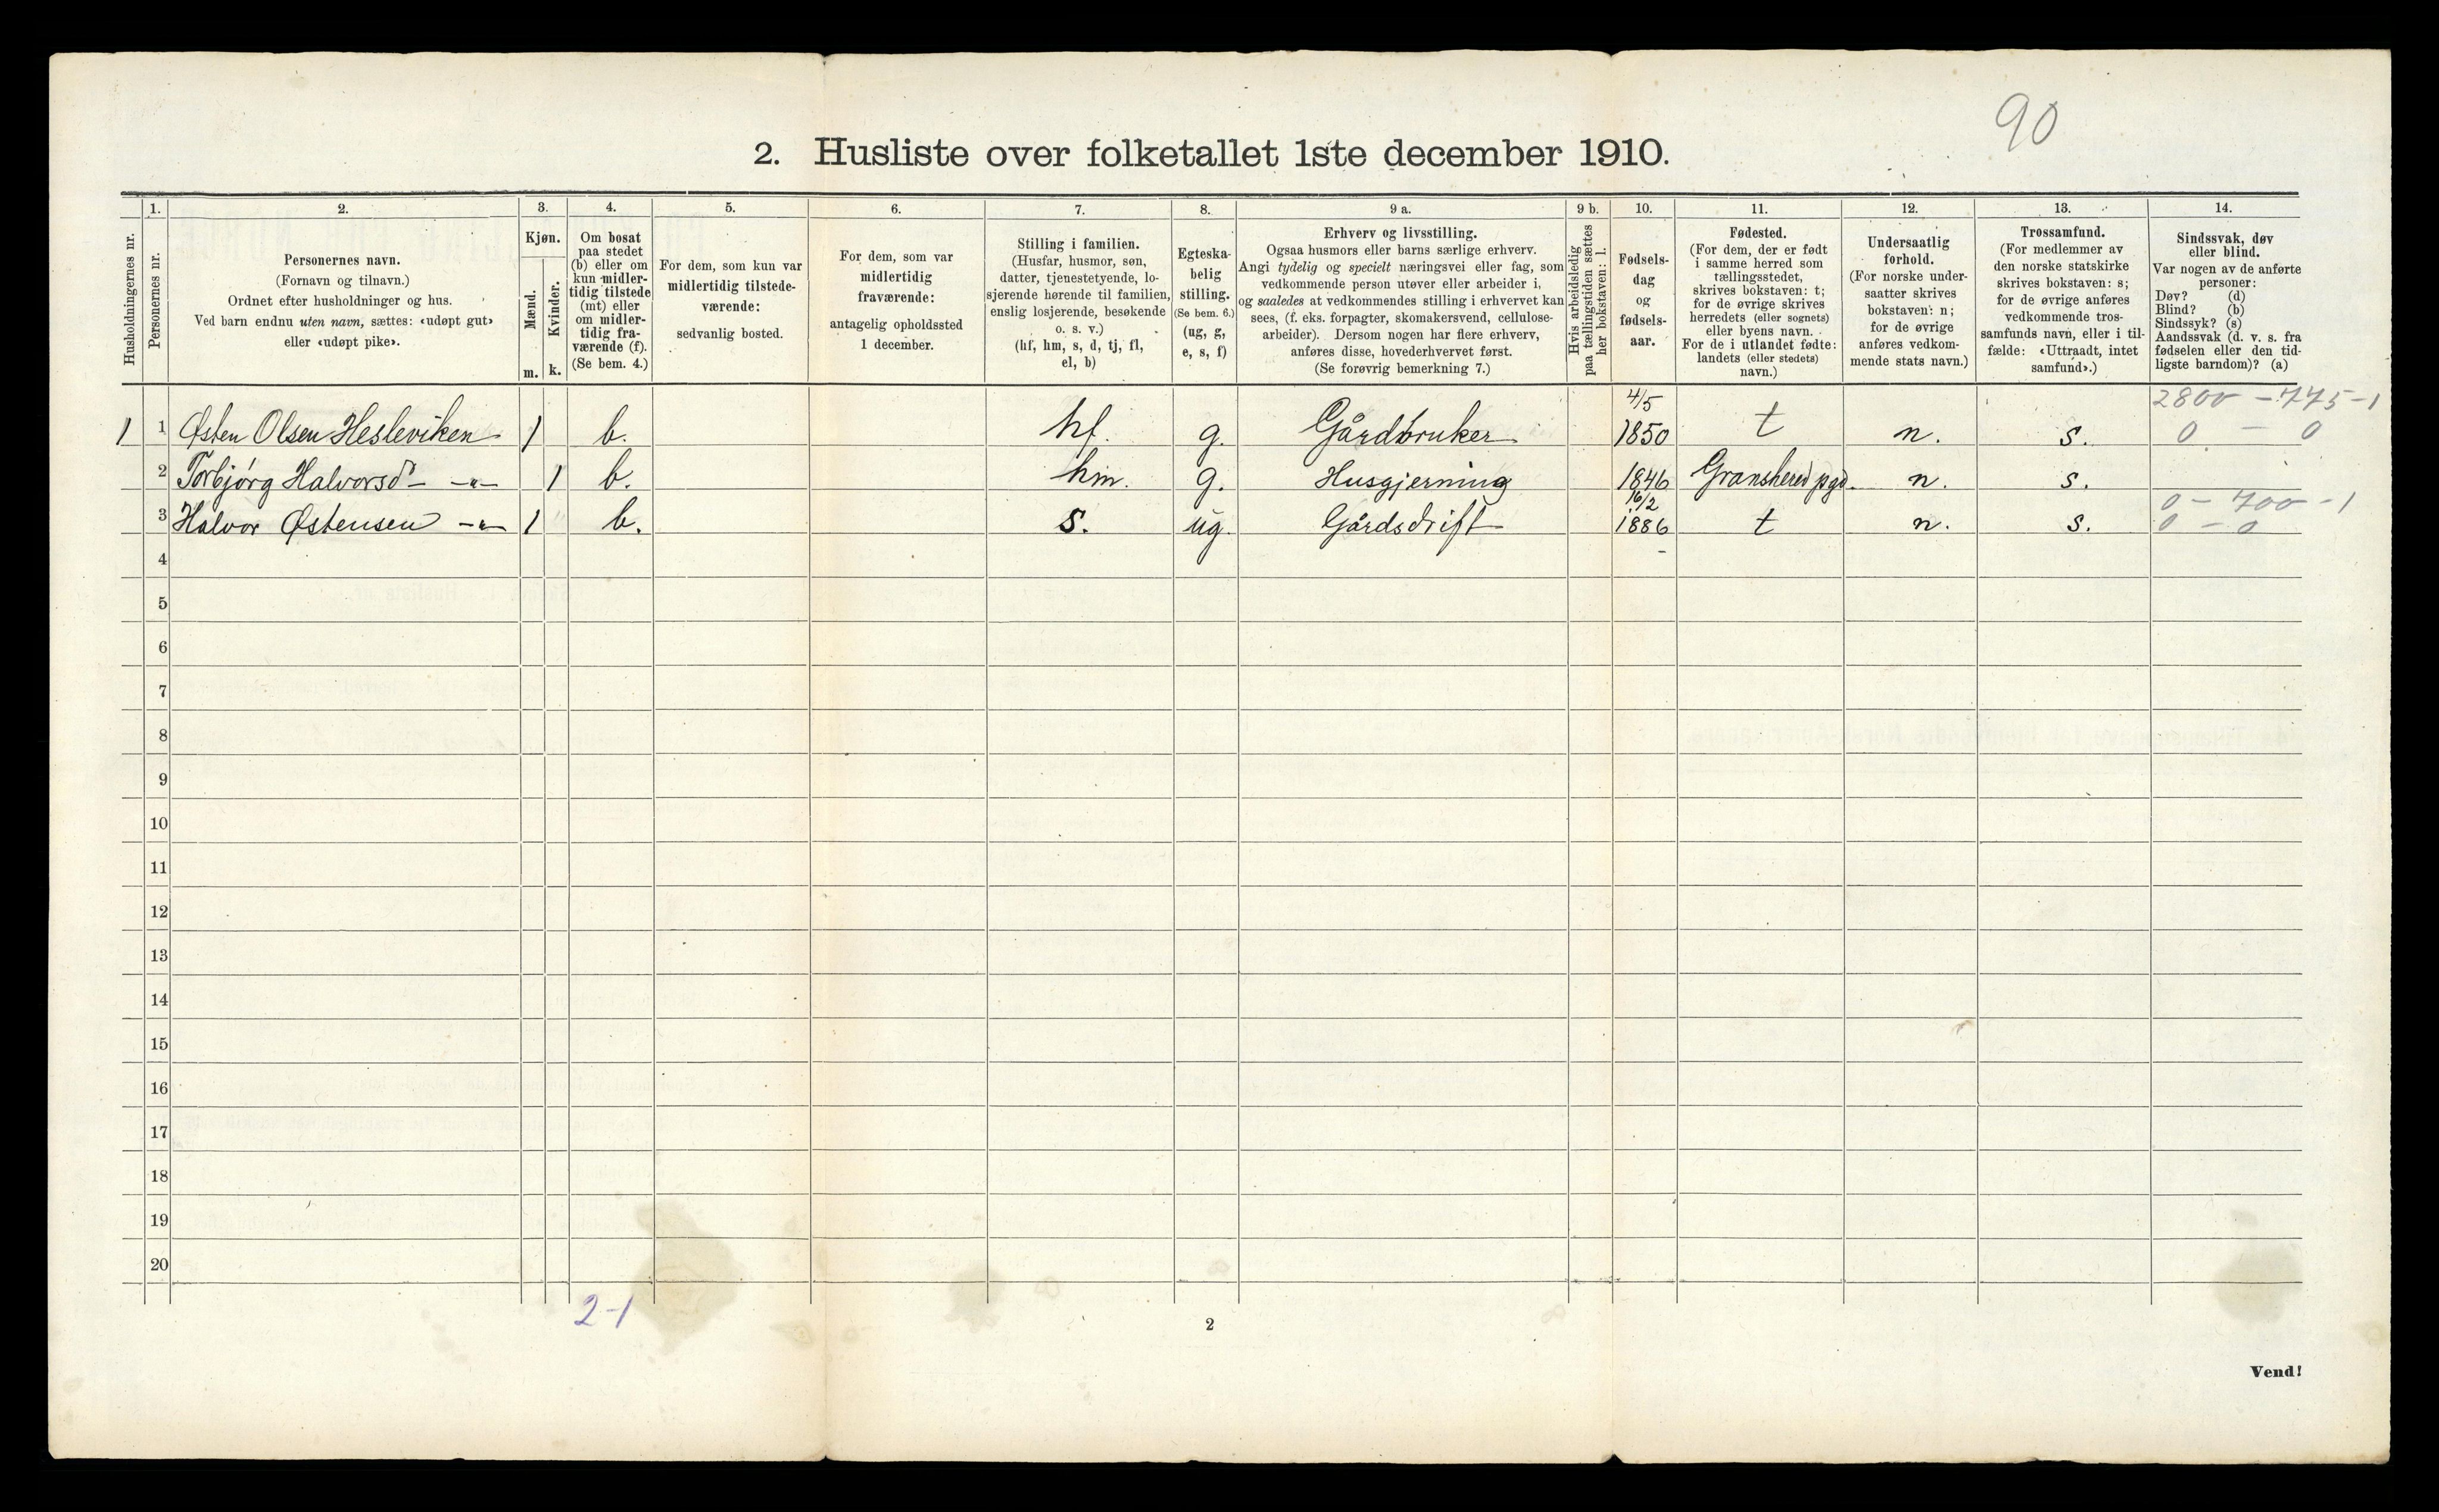 90
2. Husliste over folketallet 1ste december 1910.
Husholdningernes nr.
1.
Personernes nr.
2.
Personernes navn.
(Fornavn og tilnavn.)
Ordnet efter husholdninger og hus.
Ved barn endnu uten navn, sættes: «udøpt gut»
eller «udøpt pike».
3.
Kjøn.
Mænd.
m.
Kvinder.
k.
4.
Om bosat
paa stedet
(b) eller om
kun midler-
tidig tilstede
(mt) eller
om midler-
tidig fra-
værende (f).
(Se bem. 4.)
5.
For dem, som kun var
midlertidig tilstede-
værende:
sedvanlig bosted.
6.
For dem, som var
midlertidig
fraværende:
antagelig opholdssted
1 december.
7.
Stilling i familien.
(Husfar, husmor, søn,
datter, tjenestetyende, lo-
sjerende hørende til familien,
enslig losjerende, besøkende
o. s. v.)
(hf, hm, s, d, tj, fl,
el, b)
8.
Egteska-
belig
stilling.
(Se bem. 6.)
(ug, g,
e, s, f)
9 a.
Erhverv og livsstilling.
Ogsaa husmors eller barns særlige erhverv.
Angi tydelig og specielt næringsvei eller fag, som
vedkommende person utøver eller arbeider i,
og saaledes at vedkommendes stilling i erhvervet kan
sees, (f. eks. forpagter, skomakersvend, cellulose-
arbeider). Dersom nogen har flere erhverv,
anføres disse, hovederhvervet først.
(Se forøvrig bemerkning 7.)
9 b.
Hvis arbeidsledig
paa tællingstiden sættes
her bokstaven: l.
10.
Fødsels-
dag
og
fødsels-
aar.
11.
Fødested.
(For dem, der er født
i samme herred som
tællingsstedet,
skrives bokstaven: t;
for de øvrige skrives
herredets (eller sognets)
eller byens navn.
For de i utlandet fødte:
landets (eller stedets)
navn.)
12.
Undersaatlig
forhold.
(For norske under-
saatter skrives
bokstaven: n;
for de øvrige
anføres vedkom-
mende stats navn.)
13.
Trossamfund.
(For medlemmer av
den norske statskirke
skrives bokstaven: s;
for de øvrige anføres
vedkommende tros-
samfunds navn, eller i til-
fælde: «Uttraadt, intet
samfund».)
14.
Sindssvak, døv
eller blind.
Var nogen av de anførte
personer:
Døv? (d)
Blind? (b)
Sindssyk? (s)
Aandssvak (d. v. s. fra
fødselen eller den tid-
ligste barndom)? (a)
4/5 2800 - 775-1
1 1 Østen Olsen Hesleviken 1 b. hf. g. Gårdbruker 1850 t n. s. 0 - 0
2 Torbjørg Halvorsd - -"- 1 b. hm. g. Husgjerning 1846 Gransherred pgd. n. s.
16/2 0 - 700 - 1
3 Halvor Østensen -"- 1 b. s. ug. Gårdsdrift 1886 t n. s. 0 - 0
4
5
6
7
8
9
10
11
12
13
14
15
16
17
18
19
20
2-1
2
Vend!